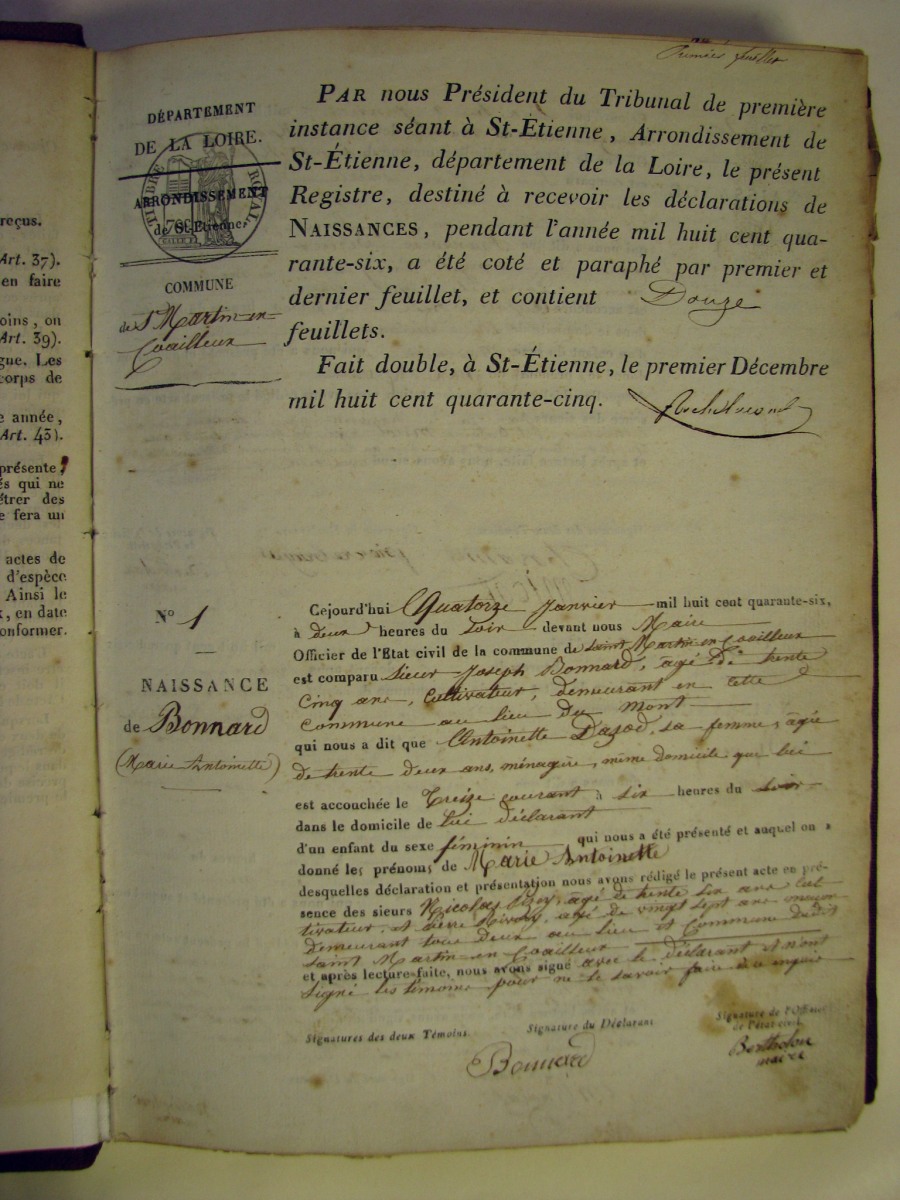 Premier feuillet
DÉPARTEMENT
DE LA LOIRE.
TIMBRE ROYAL
ARRONDISSEMENT
de St-Étienne.
COMMUNE
de St Martin-en-
Coailleux
PAR nous Président du Tribunal de première
instance séant à St-Étienne, Arrondissement de
St-Étienne, département de la Loire, le présent
Registre, destiné à recevoir les déclarations de
NAISSANCES, pendant l'année mil huit cent qua-
rante-six, a été coté et paraphé par premier et
dernier feuillet, et contient Douze
feuillets.
Fait double, à St-Étienne, le premier Décembre
mil huit cent quarante-cinq.
reçus.
Art. 37).
en faire
oins, ou
Art. 39).
gue. Les
corps de
e année,
Art. 43).
présente,
és qui ne
étrer des
e fera un
actes de
d'espèce
Ainsi le
x, en date
onformer.
N° 1
NAISSANCE
de Bonnard
(Marie Antoinette)
Cejourd'hui Quatorze Janvier mil huit cent quarante-six,
à deux heures du soir devant nous Maire
Officier de l'Etat civil de la commune de Saint Martin en Coailleux
est comparu Sieur Joseph Bonnard, âgé de trente
Cinq ans, Cultivateur, demeurant en cette
Commune au lieu du Mont
qui nous a dit que Antoinette sa femme, âgée
de trente deux ans, ménagère, même domicile que lui
est accouchée le Treize courant à six heures du soir
dans le domicile de lui déclarant
d'un enfant du sexe féminin qui nous a été présenté et auquel on a
donné les prénoms de Marie Antoinette
desquelles déclaration et présentation nous avons rédigé le présent acte en pré-
sence des sieurs Nicolas âgé de trente six ans cul
tivateur, et pierre âgé de vingt sept ans
demeurant tous deux au lieu et Commune dudit
saint Martin en Coailleux
et après lecture faite, nous avons signé avec le déclarant et n'ont
signé les témoins pour ne le savoir faire de ce enquis
Signatures des deux Témoins.
Signature du Déclarant
Signature de l'Officier
de l'état-civil
Bonnard
Bertholon
maire